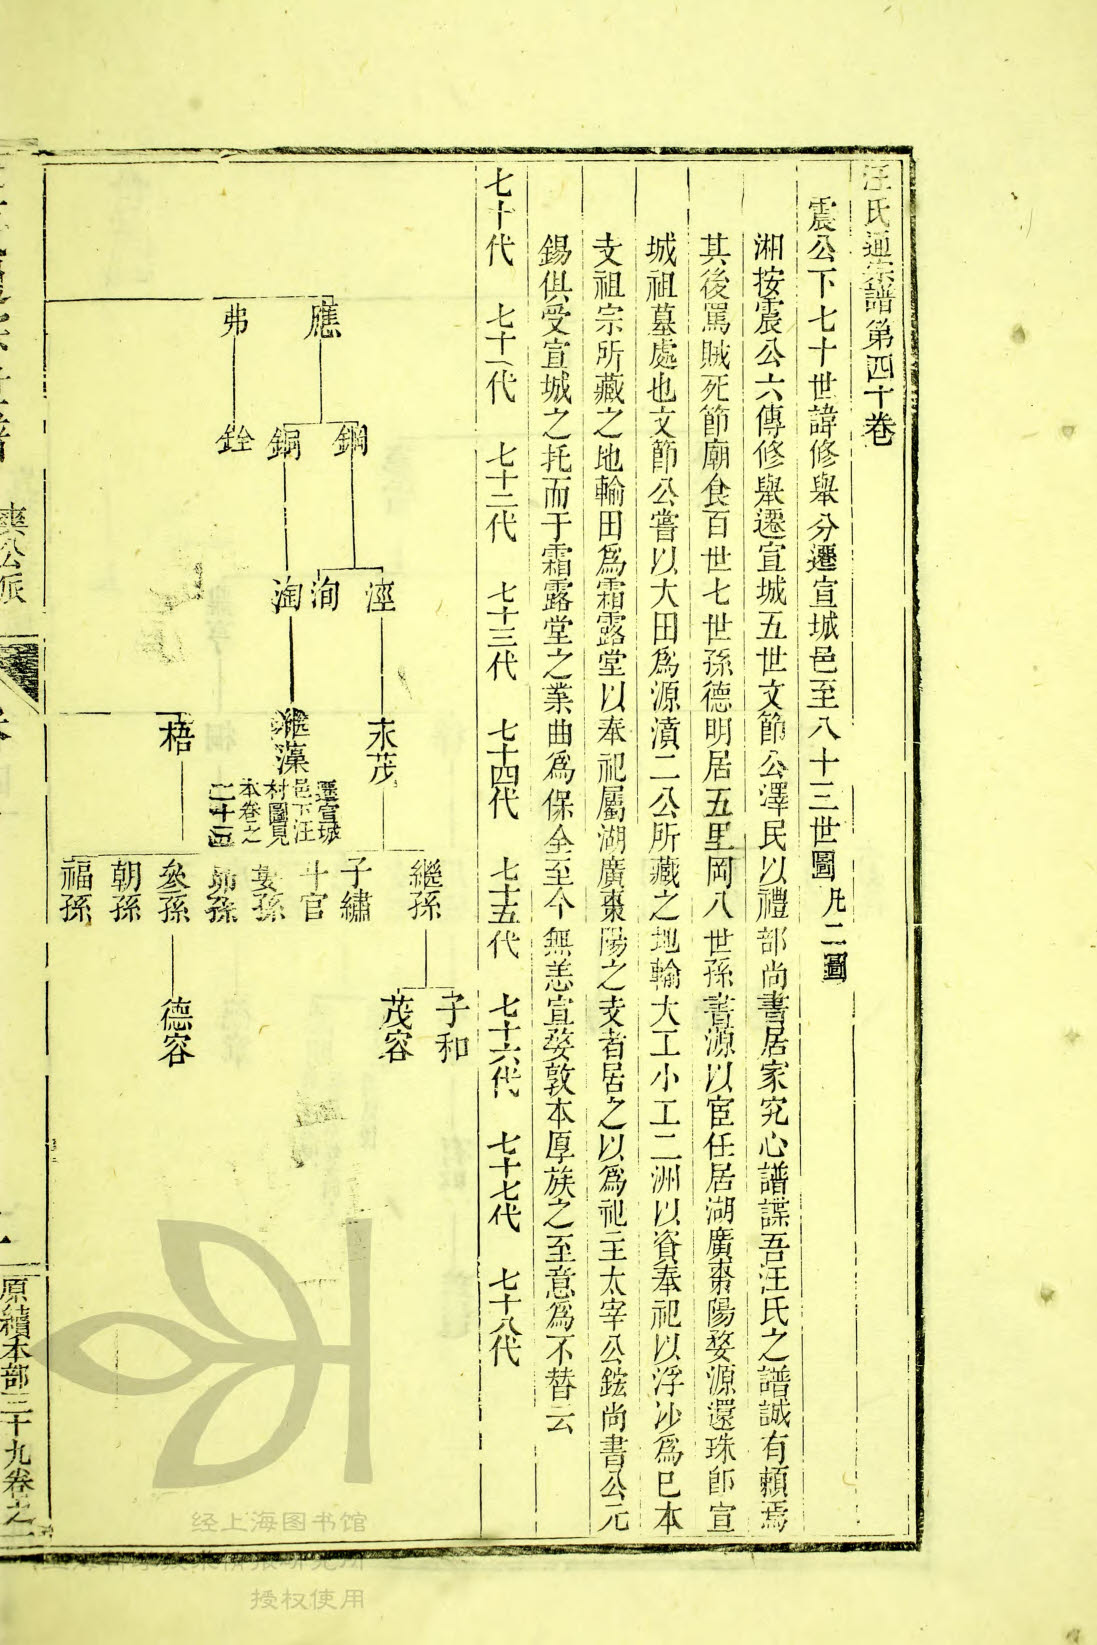 汪氏通宗譜第四十卷
震公下七十世諱修舉分遷宣城邑至八十三世圖 凡二圖
湘按震公六傳修舉遷宣城五世文節公澤民以禮部尚書居家究心譜諜吾汪氏之譜誠有賴焉
其後罵賊死節廟食百世七世孫德明居五里岡八世孫書源以宦任居湖廣棗陽婺源還珠即宣
城祖墓處也文節公嘗以大田爲源瀆二公所藏之地輸大工小工二洲以資奉祀以浮沙爲巳本
支祖宗所藏之地輸田爲霜露堂以奉祀屬湖廣棗陽之支者居之以爲祀主太宰公鋐尚書公元
錫俱受宣城之托而于霜露堂之業曲爲保全至今無恙宣婺敦本厚族之至意爲不替云
七十代 七十一代 七十二代 七十三代 七十四代 七十五代 七十六代 七十七代 七十八代
應
弗
鋼
銅
銓
涇
洵
淘
永茂
繼藻
遷宣城
邑下汪
村圖見
本卷之
二十
梧
繼孫
子繡
斗官
婁孫
昴孫
奎孫
朝孫
福孫
子和
茂容
德容
爽公派
原續本部三十九卷之一
经上海图书馆
授权使用